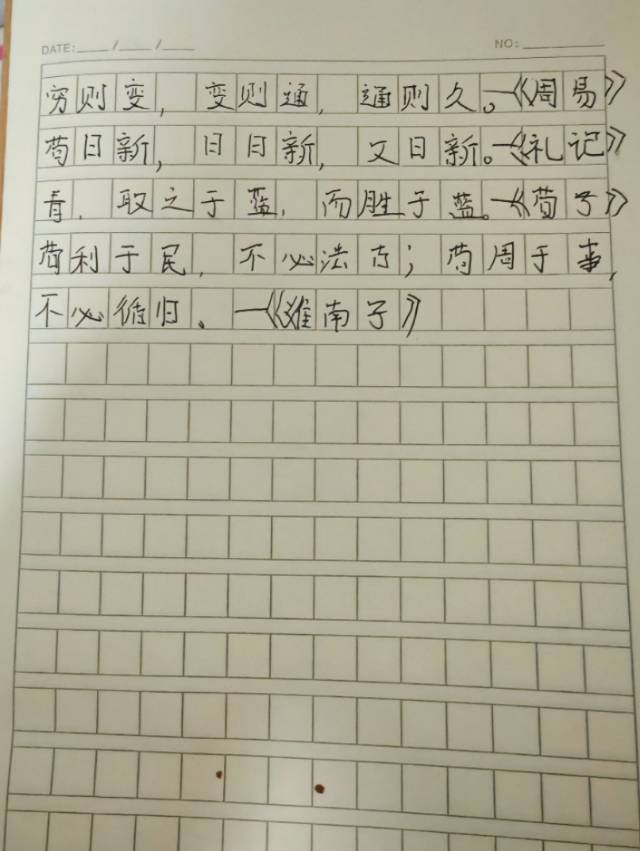 DATE: / / NO:
穷则变，变则通，通则久。—《周易》
苟日新，日日新，又日新。—《礼记》
青，取之于蓝，而胜于蓝。—《荀子》
苟利于民，不必法古；苟周于事，
不必循旧。—《淮南子》